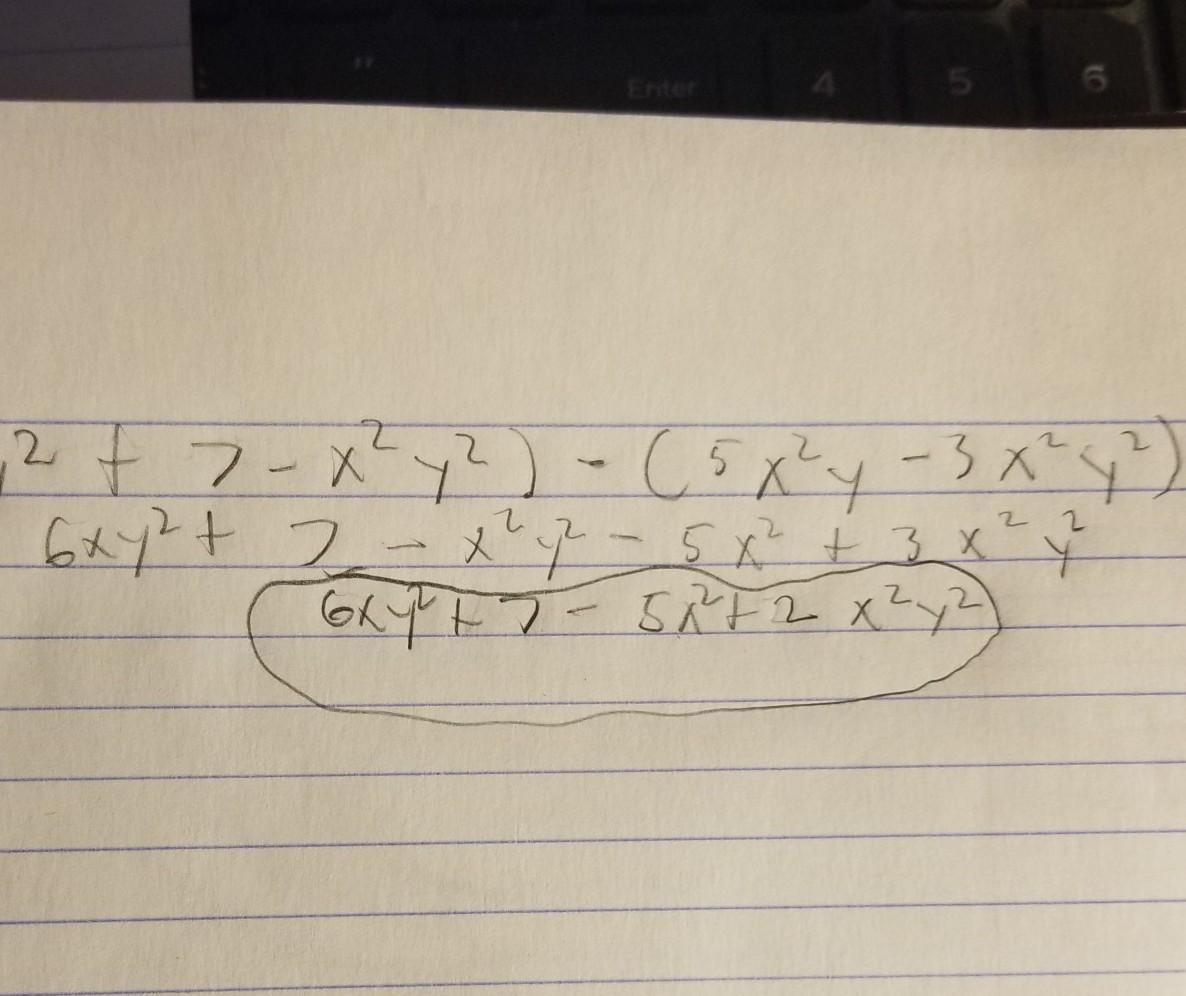 "
Enter 4 5 6
y² + 7 - x² y²) - (5x²y - 3x² y²)
6xy² + 7 - x² y² - 5x² + 3x² y²
6xy² + 7 - 5x² + 2 x² y²